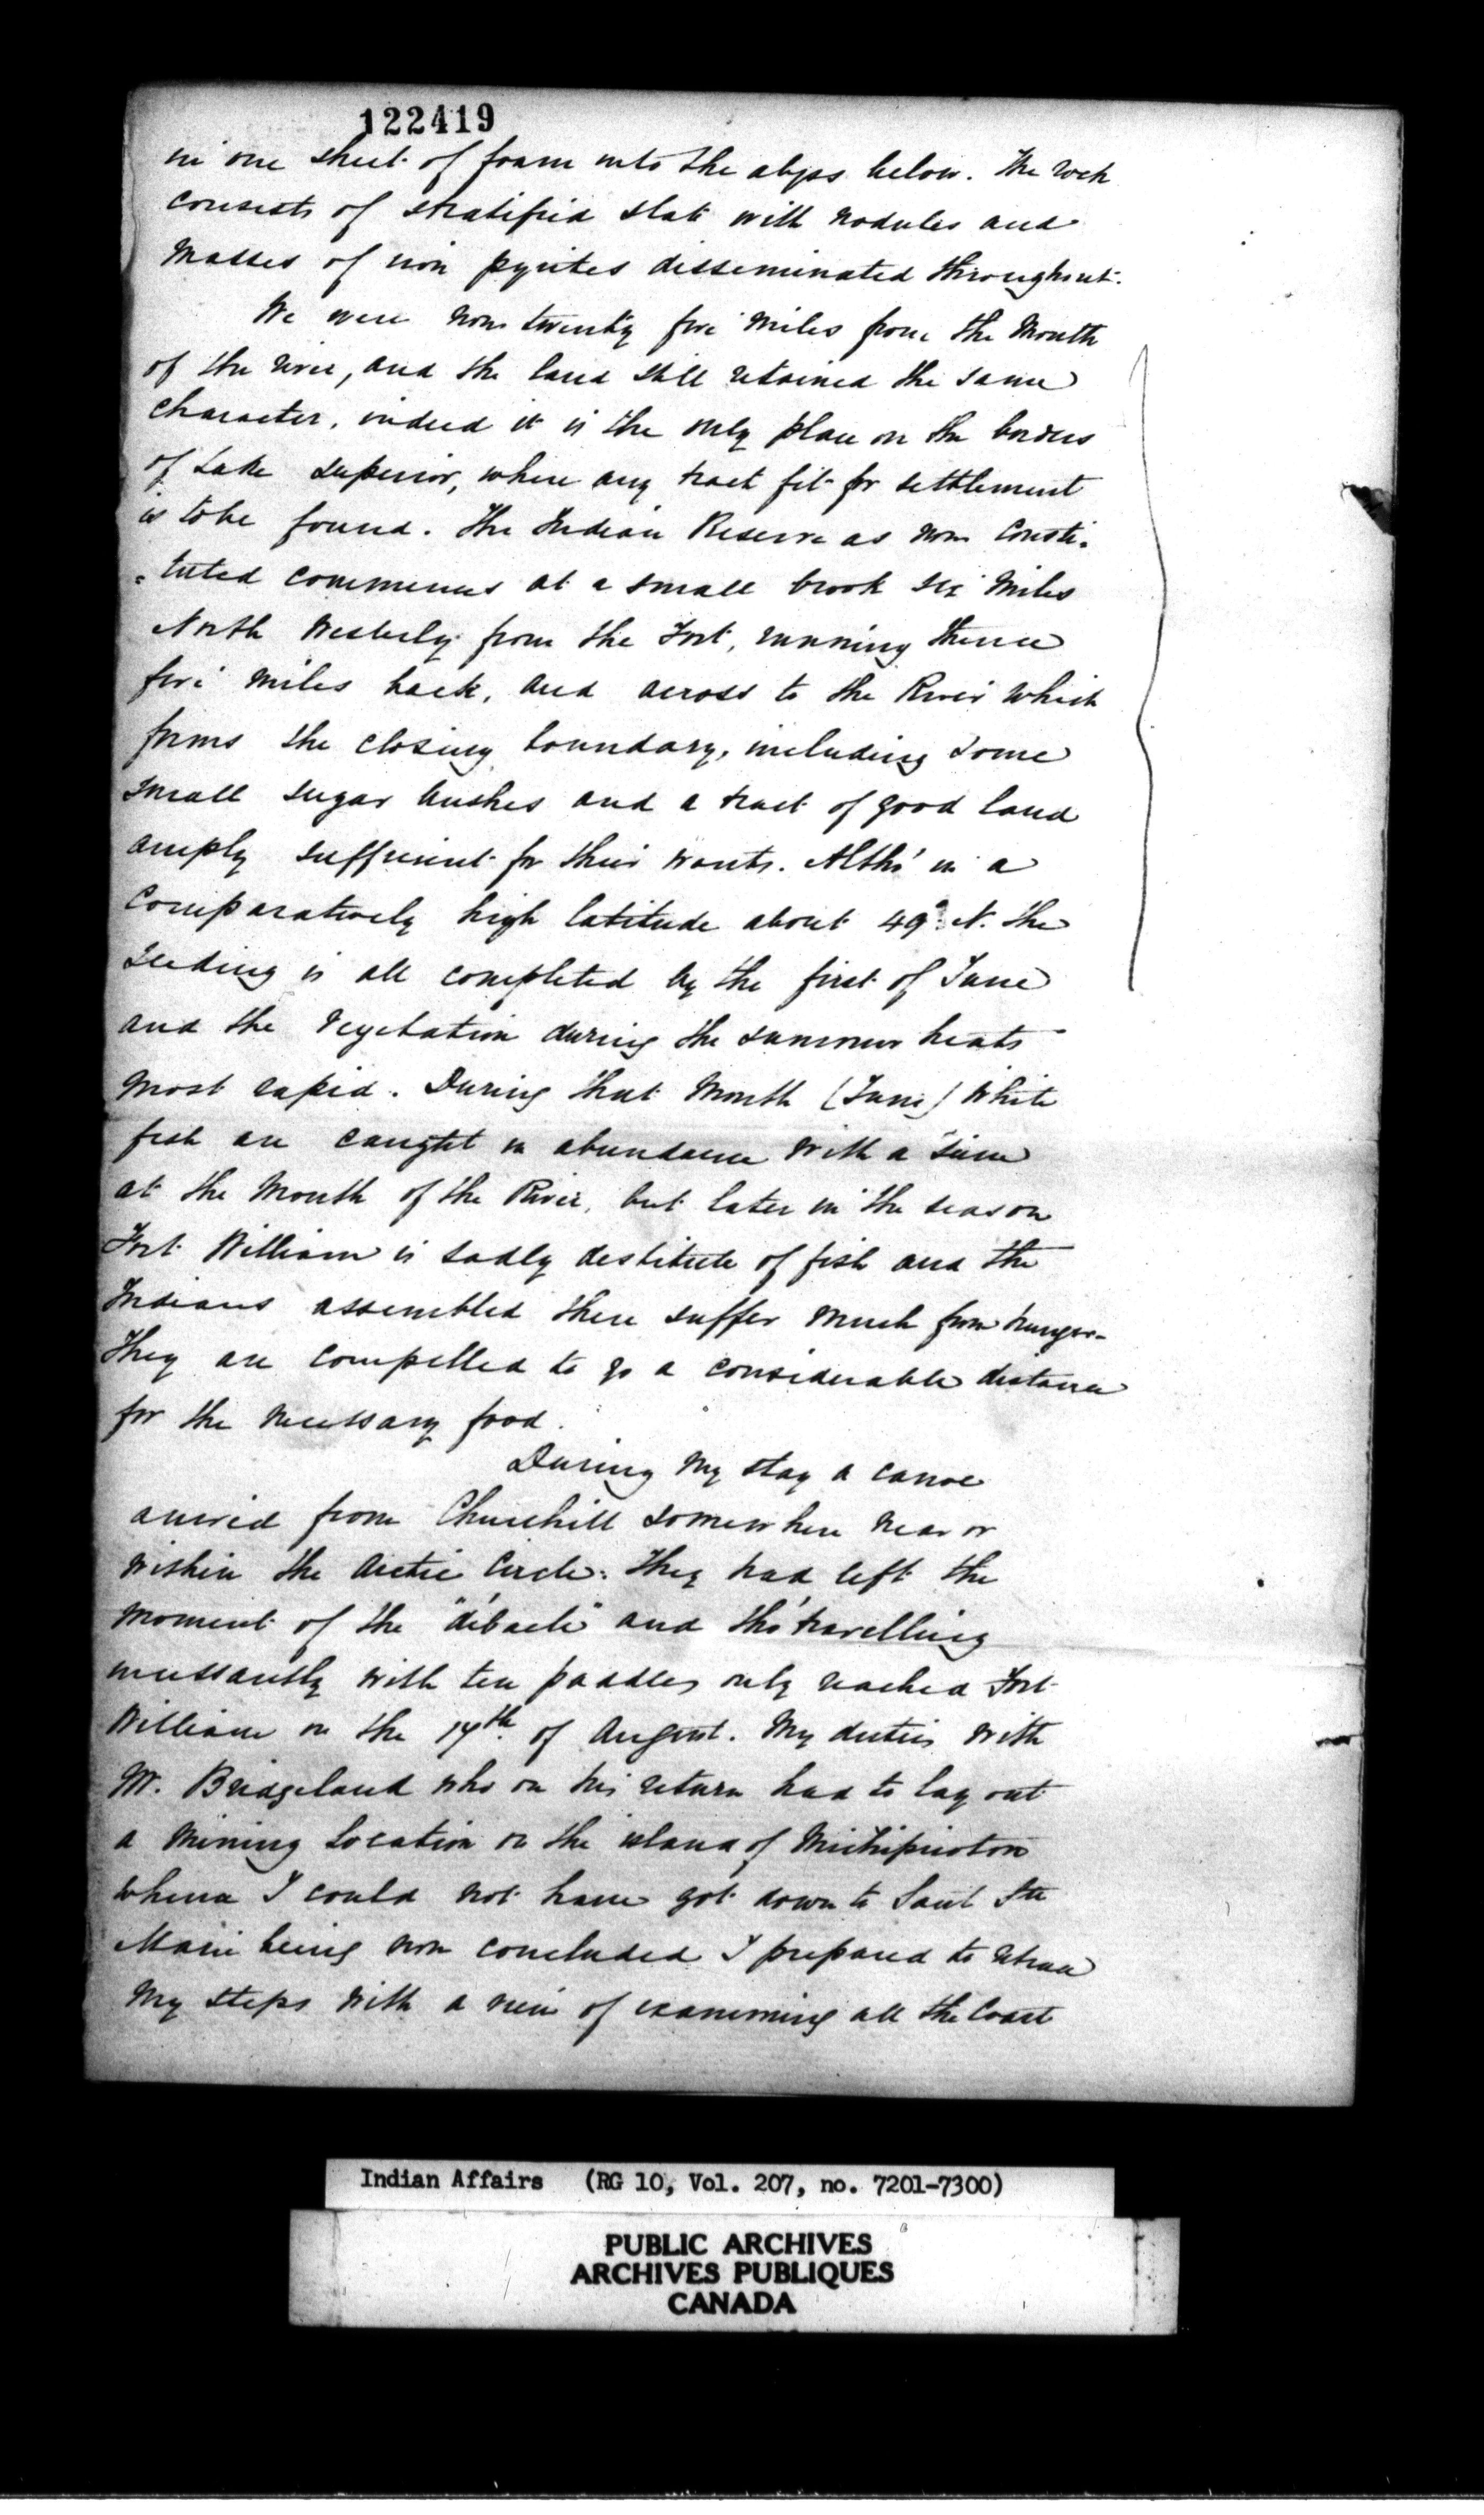 122419
in one sheet of foam into the abyss below. The rock
consists of stratified slate with nodules and
masses of iron pyrites disseminated throughout.
We were now twenty five miles from the mouth
of the river, and the land still retained the same
character, indeed it is the only place on the borders
of Lake Superior, where any tract fit for settlement
is to be found. The Indian Reserve as now consti-
=tuted commences at a small brook six miles
North Westerly from the Fort, running thence
five miles back, and across to the River which
forms the closing boundary, including some
small sugar bushes and a tract of good land
amply sufficient for their wants. Altho' in a
comparatively high latitude about 49° N. the
seeding is all completed by the first of June
and the vegetation during the summer heats
most rapid. During that month (June) white
fish are caught in abundance with a seine
at the mouth of the River, but later in the season
Fort William is sadly destitute of fish and the
Indians assembled there suffer much from hunger.
They are compelled to go a considerable distance
for the necessary food.
During my stay a canoe
arrived from Churchill somewhere near or
within the Arctic Circle. They had left the
moment of the "débacle" and tho' travelling
incessantly with ten paddles only reached Fort
William on the of August. My duties with
Mr. Bridgeland who on his return had to lay out
a Mining Location on the island of Michipicoton
whence I could not have got down to Saut Ste
Marie being now concluded I prepared to retrace
my steps with a view of examining all the Coast
Indian Affairs (RG 10, Vol. 207, no. 7201-7300)
PUBLIC ARCHIVES
ARCHIVES PUBLIQUES
CANADA